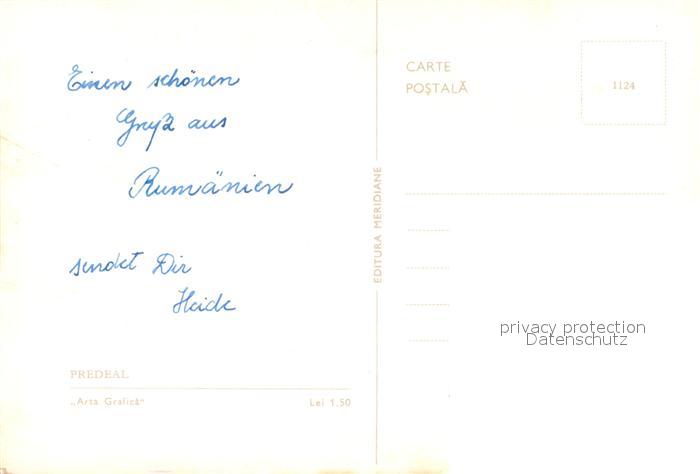 Einen schönen
Gruß aus
Rumänien
sendet Dir
Heide
PREDEAL
„Arta Grafică“
Lei 1.50
EDITURA MERIDIANE
CARTE
POȘTALĂ
1124
privacy protection
Datenschutz